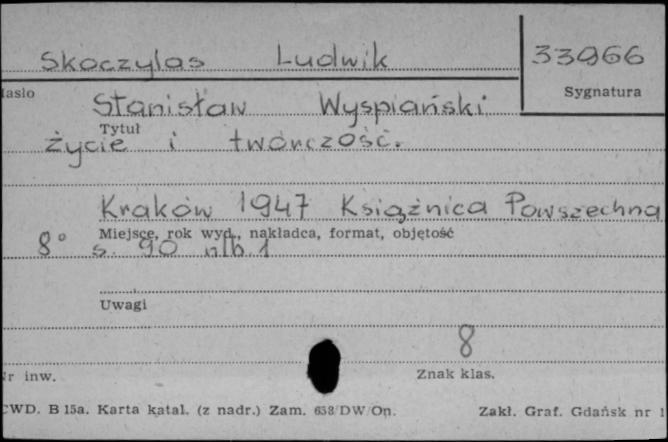 Skoczylas Ludwik 33966
Sygnatura
Hasło
Stanisław Wyspiański
Tytuł
życie i twórczość.
Kraków 1947 Książnica Powszechna
Miejsce, rok wyd., nakładca, format, objętość
8° s. 90 nlb. 1
Uwagi
8
Nr inw. Znak klas.
CWD. B 15a. Karta katal. (z nadr.) Zam. 638/DW/On. Zakł. Graf. Gdańsk nr 1